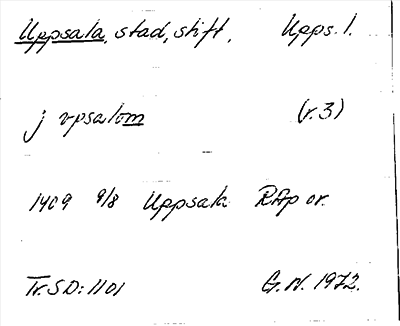 Uppsala, stad, stift. Upps. l.
j vpsalom (r. 3)
1409 9/8 Uppsala RAp or.
Tr. SD: 1101 G.N. 1972.